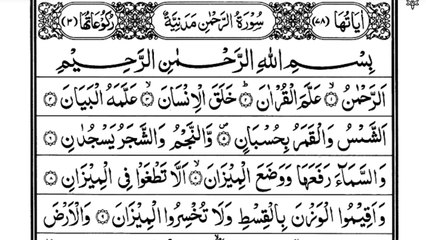 اٰيَاتُهَا (٧٨) سُوْرَةُ الرَّحْمٰنِ مَدَنِيَّةٌ رُكُوْعَاتُهَا (٣)
بِسْمِ اللهِ الرَّحْمٰنِ الرَّحِيْمِ
اَلرَّحْمٰنُ ۝١ عَلَّمَ الْقُرْاٰنَ ۝٢ خَلَقَ الْاِنْسَانَ ۝٣ عَلَّمَهُ الْبَيَانَ ۝٤
اَلشَّمْسُ وَالْقَمَرُ بِحُسْبَانٍ ۝٥ وَّالنَّجْمُ وَالشَّجَرُ يَسْجُدٰنِ ۝٦
وَالسَّمَآءَ رَفَعَهَا وَوَضَعَ الْمِيْزَانَ ۝٧ اَلَّا تَطْغَوْا فِى الْمِيْزَانِ ۝٨
وَاَقِيْمُوا الْوَزْنَ بِالْقِسْطِ وَلَا تُخْسِرُوا الْمِيْزَانَ ۝٩ وَالْاَرْضَ